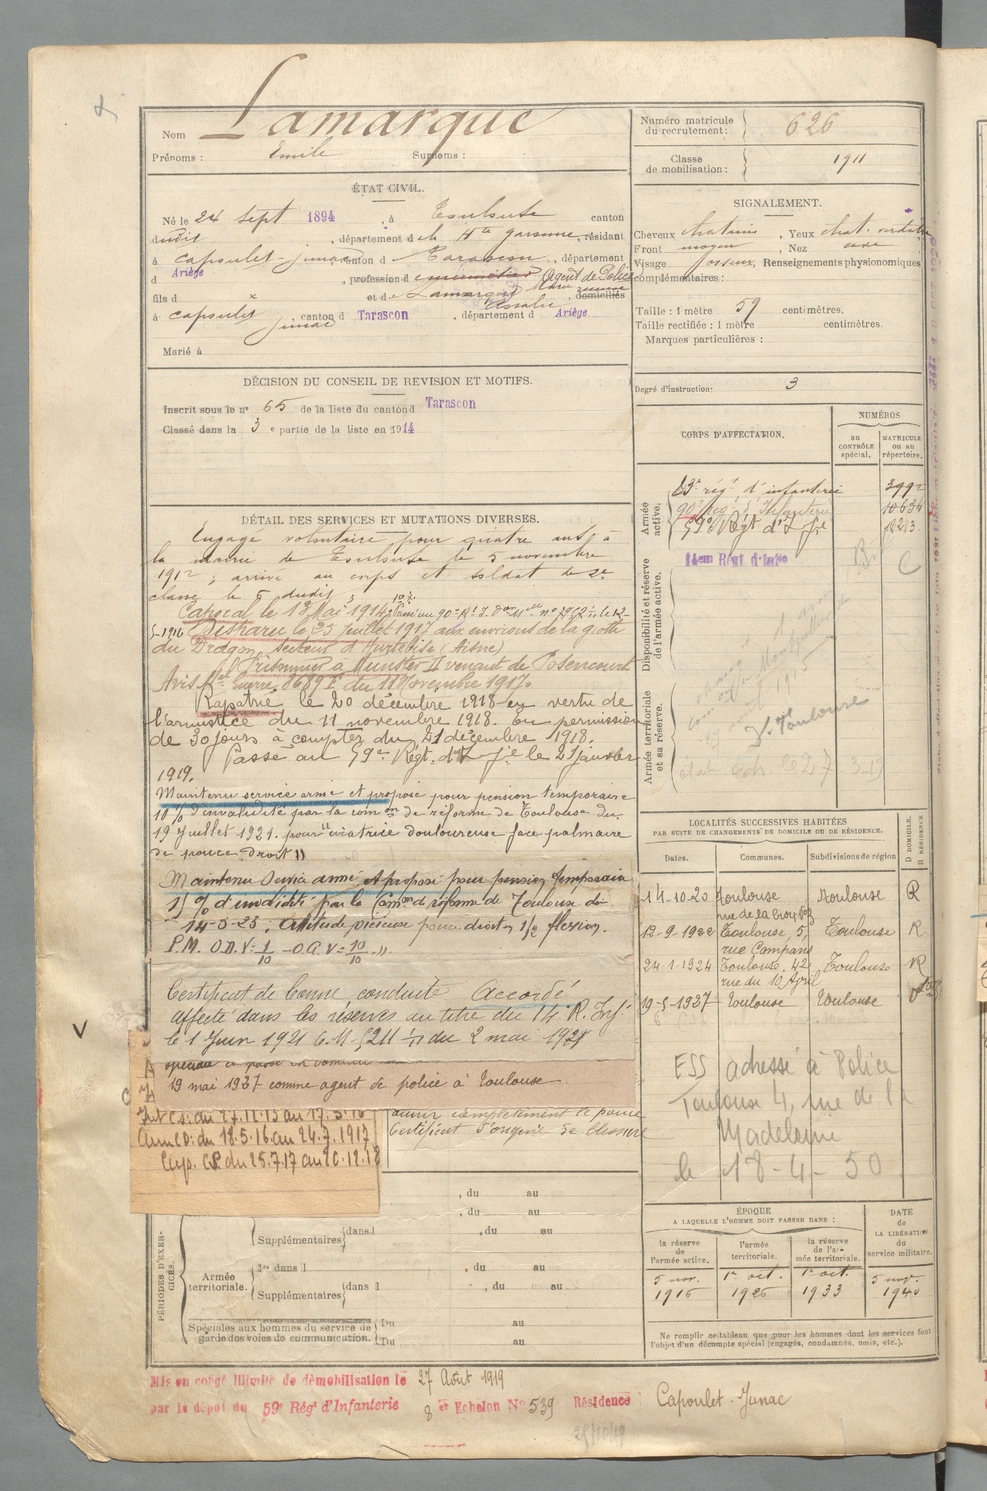 Nom Lamarque
Prénoms : Emile Surnoms :
Numéro matricule du recrutement : 626
Classe de mobilisation : 1911
ÉTAT CIVIL.
Né le 24 sept 1894, à Toulouse canton
dudit, département de la Hte Garonne, résidant
à Capoulet-Junac canton d Tarascon, département
d Ariège, profession d Agent de Police
fils d x et de Lamarque Marie Rosalie, domiciliés
à Capoulet Junac, canton d Tarascon, département d Ariège
Marié à
SIGNALEMENT.
Cheveux chatains, Yeux chat. verdatre
Front moyen, Nez cave
Visage osseux, Renseignements physionomiques
complémentaires :
Taille : 1 mètre 59 centimètres.
Taille rectifiée : 1 mètre centimètres.
Marques particulières :
Degré d'instruction : 3
DÉCISION DU CONSEIL DE REVISION ET MOTIFS.
Inscrit sous le n° 65 de la liste du canton d Tarascon
Classé dans la 3 e partie de la liste en 1914
DÉTAIL DES SERVICES ET MUTATIONS DIVERSES.
Engagé volontaire pour quatre ans, à
la mairie de Toulouse le 5 novembre
1912 ; arrivé au corps et soldat de 2e
classe le 5 dudit ;
Caporal le 13 Mai 1914 ; Passé au 90e R.I.
5-1916 Disparu le 25 juillet 1917 aux environs de la grotte
du Dragon, secteur d'Hurtebise (Aisne)
Prisonnier à Munster II venant de
Avis Guerre du 11 Novembre 1917.
Rapatrié le 20 décembre 1918 en vertu de
l'armistice du 11 novembre 1918. En permission
de 30 jours à compter du 21 décembre 1918.
Passé au 59e Régt. d'Ie le 21 janvier
1919.
Maintenu service armé et proposé pour pension temporaire
10 % d'invalidité par la comon de réforme de Toulouse du
19 juillet 1921. pour "cicatrice douloureuse face palmaire
de pouce droit"
Maintenu Service armé et proposé pour pension temporaire
15 % d'invalidité par la Comon de réforme de Toulouse du
14-5-23 ; attitude vicieuse pouce droit en 1/2 flexion.
P.M. O.D. V = 1/10 - O.G. V = 10/10 .».
Certificat de bonne conduite Accordé
affecté dans les réserves au titre du 14 R. Inf.
le 1 Juin 1921 C.M. du 2 mai 1921
19 mai 1937 comme agent de police à Toulouse
Int CS: du 27.11.15 au 17.5.16
Aux CD: du 18.5.16 au 24.7.1917
Cap. CP du 25.7.17 au 20.12.18
complètement le pouce
Certificat d'origine de blessure
CORPS D'AFFECTATION.
NUMÉROS
au CONTRÔLE spécial.
MATRICULE ou au répertoire.
Armée active.
83e rég. d'infanterie 3992
90e Rég. d'Infanterie 10634
59e Régt d'Ie 18213
Disponibilité et réserve de l'armée active.
14eme Régt d'Infie
Armée territoriale et sa réserve.
LOCALITÉS SUCCESSIVES HABITÉES
PAR SUITE DE CHANGEMENTS DE DOMICILE OU DE RÉSIDENCE.
Dates. Communes. Subdivisions de région D DOMICILE. R RÉSIDENCE
14-10-20 Toulouse Toulouse R
12-9-1922 Toulouse, 5, rue Compans Toulouse R
24-1-1924 Toulouse, 42, rue du 10 Avril Toulouse R
19-5-1937 Toulouse Toulouse
ESS adressé à Police
Toulouse 4, rue de la
Madeleine
le 18-4-50
PÉRIODES D'EXERCICES.
, du au
, du au
Supplémentaires dans l , du au
Armée territoriale.
1re dans l , du au
Supplémentaires dans l , du au
Spéciales aux hommes du service de garde des voies de communication.
Du au
Du au
ÉPOQUE
A LAQUELLE L'HOMME DOIT PASSER DANS :
la réserve de l'armée active. l'armée territoriale. la réserve de l'armée territoriale.
DATE de LA LIBÉRATION du service militaire.
5 nov. 1916 1er oct. 1926 1er oct. 1933 5 nov. 1940
Ne remplir ce tableau que pour les hommes dont les services font
l'objet d'un décompte spécial (engagés, condamnés, omis, etc.).
Mis en congé illimité de démobilisation le 27 Août 1919
par le dépôt du 59e Régt d'Infanterie 8 e Echelon N° 539 Résidence Capoulet-Junac